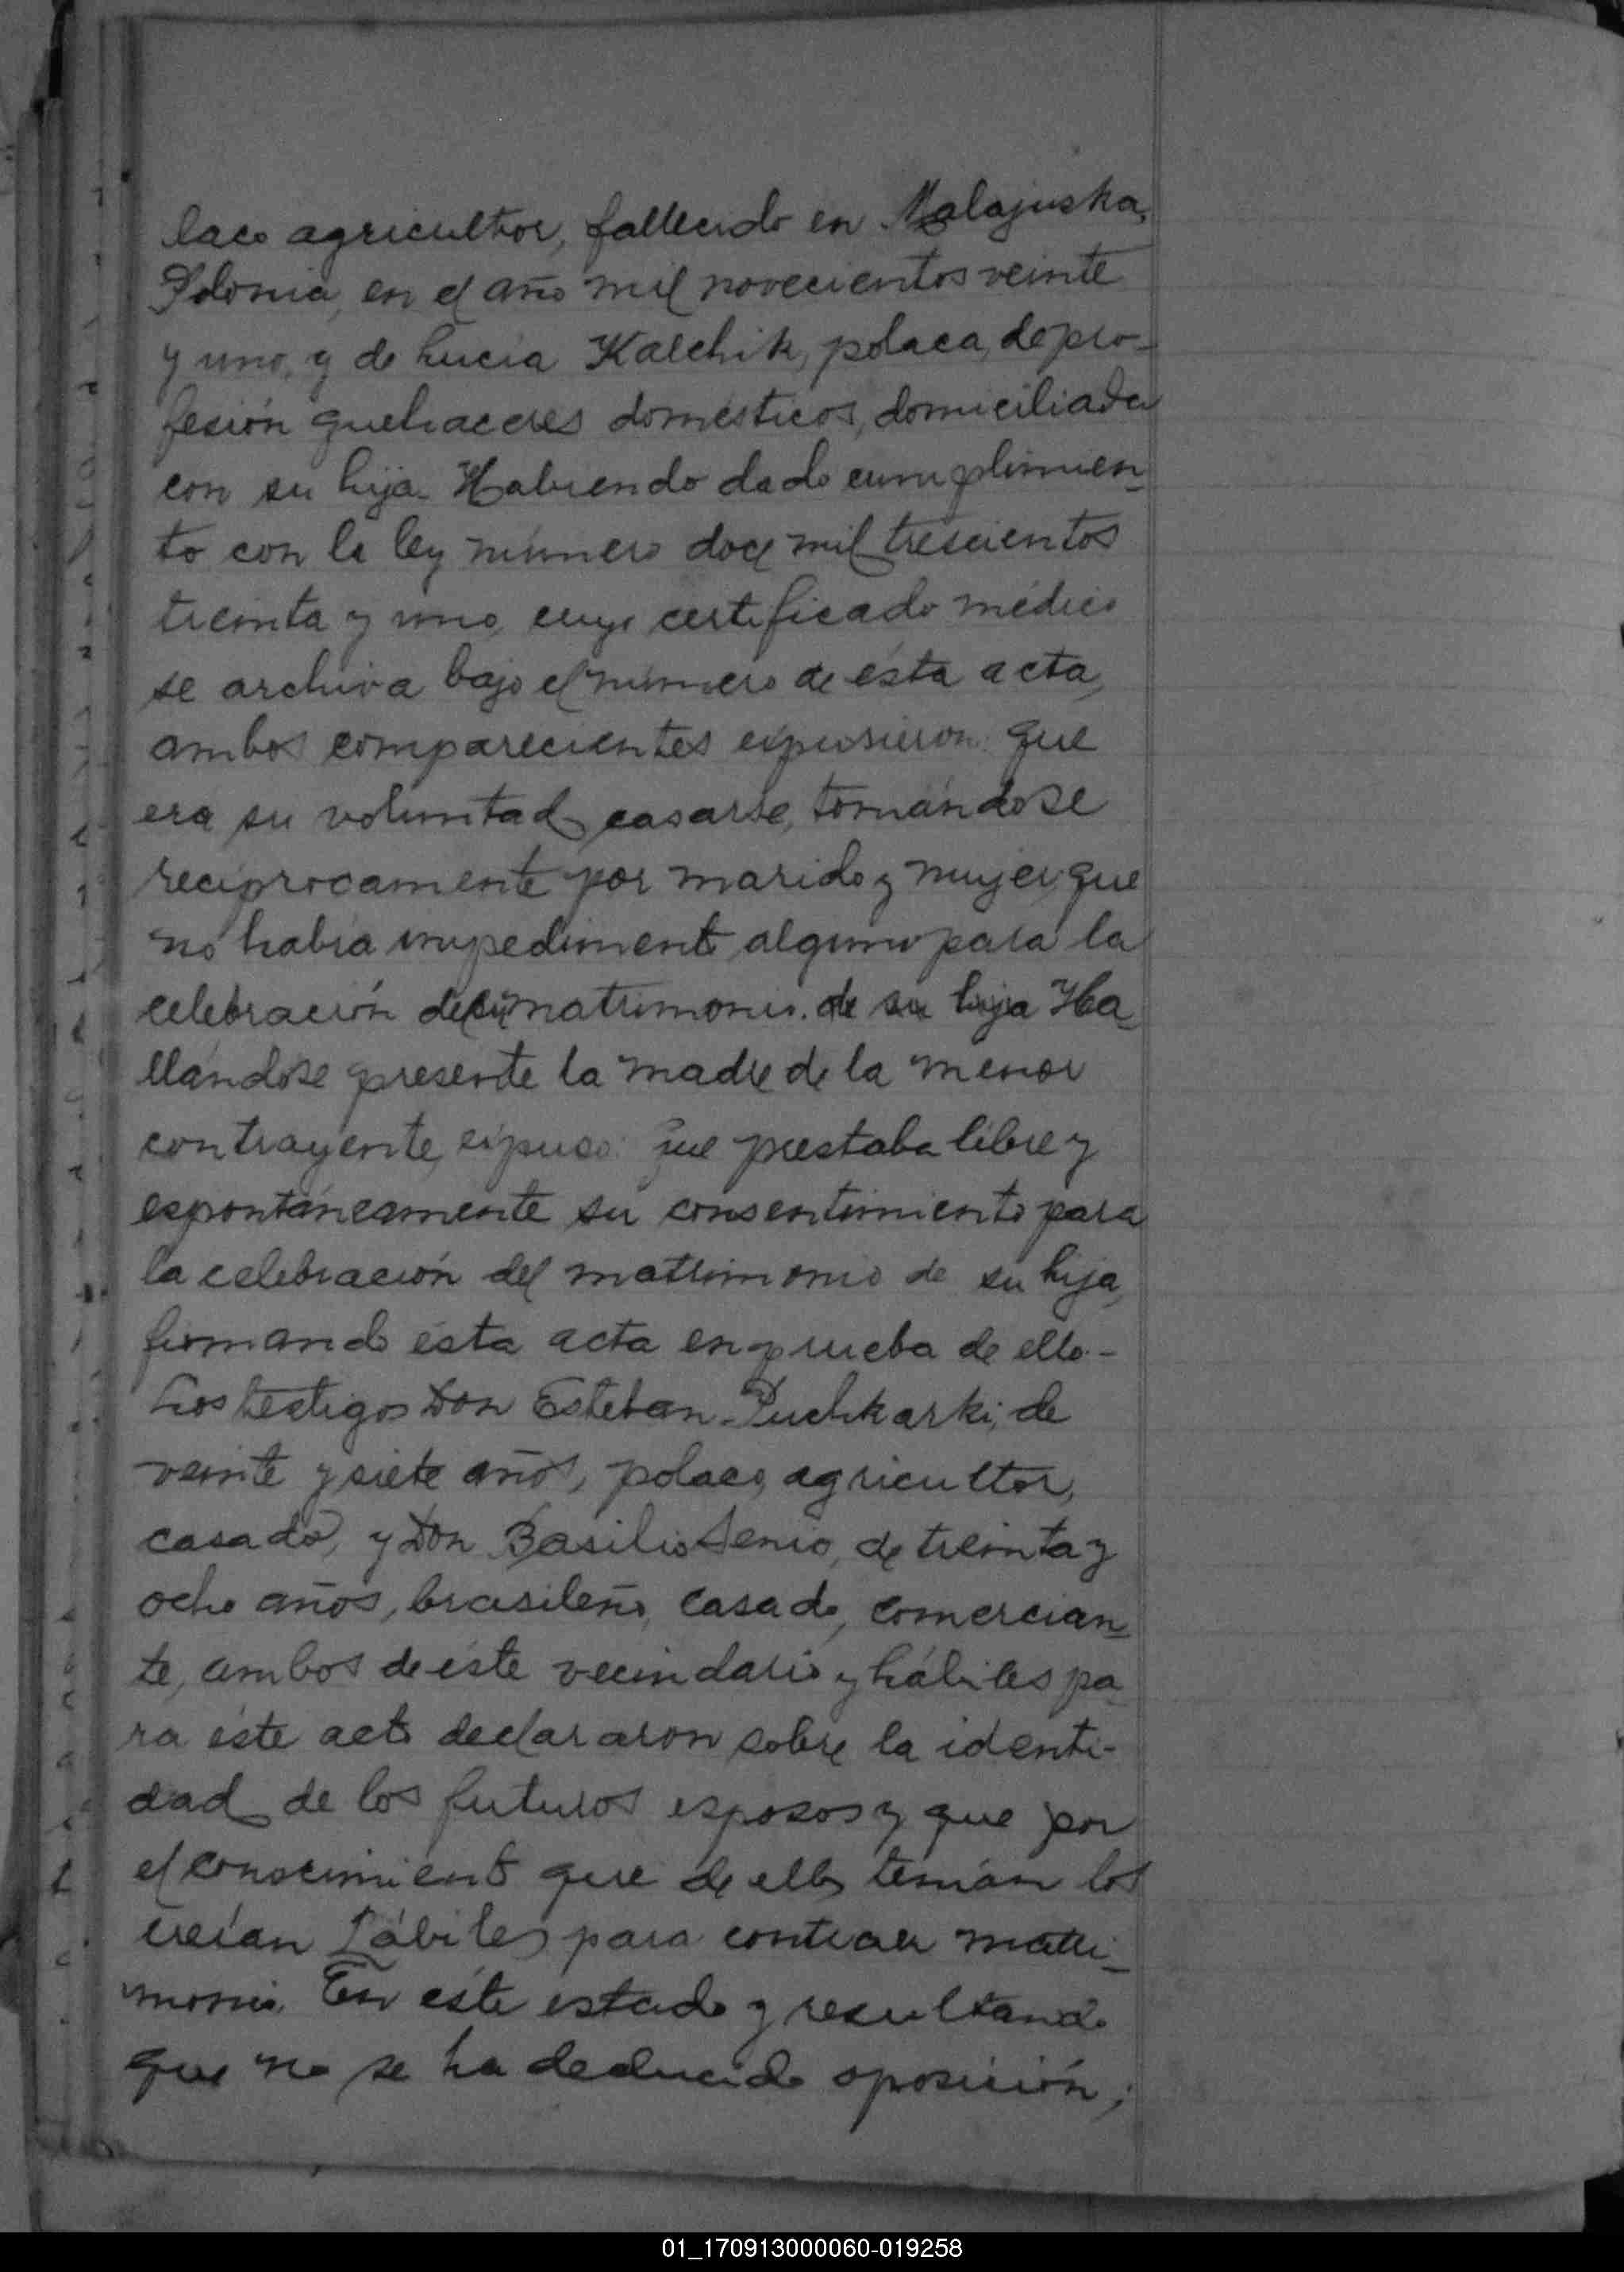 laco agricultor, fallecido en Malajuska,
Polonia, en el año mil novecientos veinte
y uno, y de Lucia Kalchik, polaca, de pro-
fesión quehaceres domésticos, domiciliada
con su hija. Habiendo dado cumplimien-
to con la ley número doce mil trescientos
treinta y uno, cuyo certificado médico
se archiva bajo el número de ésta acta,
ambos comparecientes expusieron: que
era su voluntad casarse, tomándose
reciprocamente por marido y mujer, que
no había impedimento alguno para la
celebración del matrimonio. de su hija Ha-
llándose presente la madre de la menor
contrayente, expuso: que prestaba libre y
espontáneamente su consentimiento para
la celebración del matrimonio de su hija,
firmando ésta acta en prueba de ello.-
Los testigos Don Esteban Puchkarki, de
veinte y siete años, polaco, agricultor,
casado, y Don Basilio Senio, de treinta y
ocho años, brasileño, casado, comercian-
te, ambos de éste vecindario y hábiles pa-
ra éste acto declararon sobre la identi-
dad de los futuros esposos y que por
el conocimiento que de ellos tenían los
creían hábiles para contraer matri-
monio. En éste estado y resultando
que no se ha deducido oposición;
01_170913000060-019258